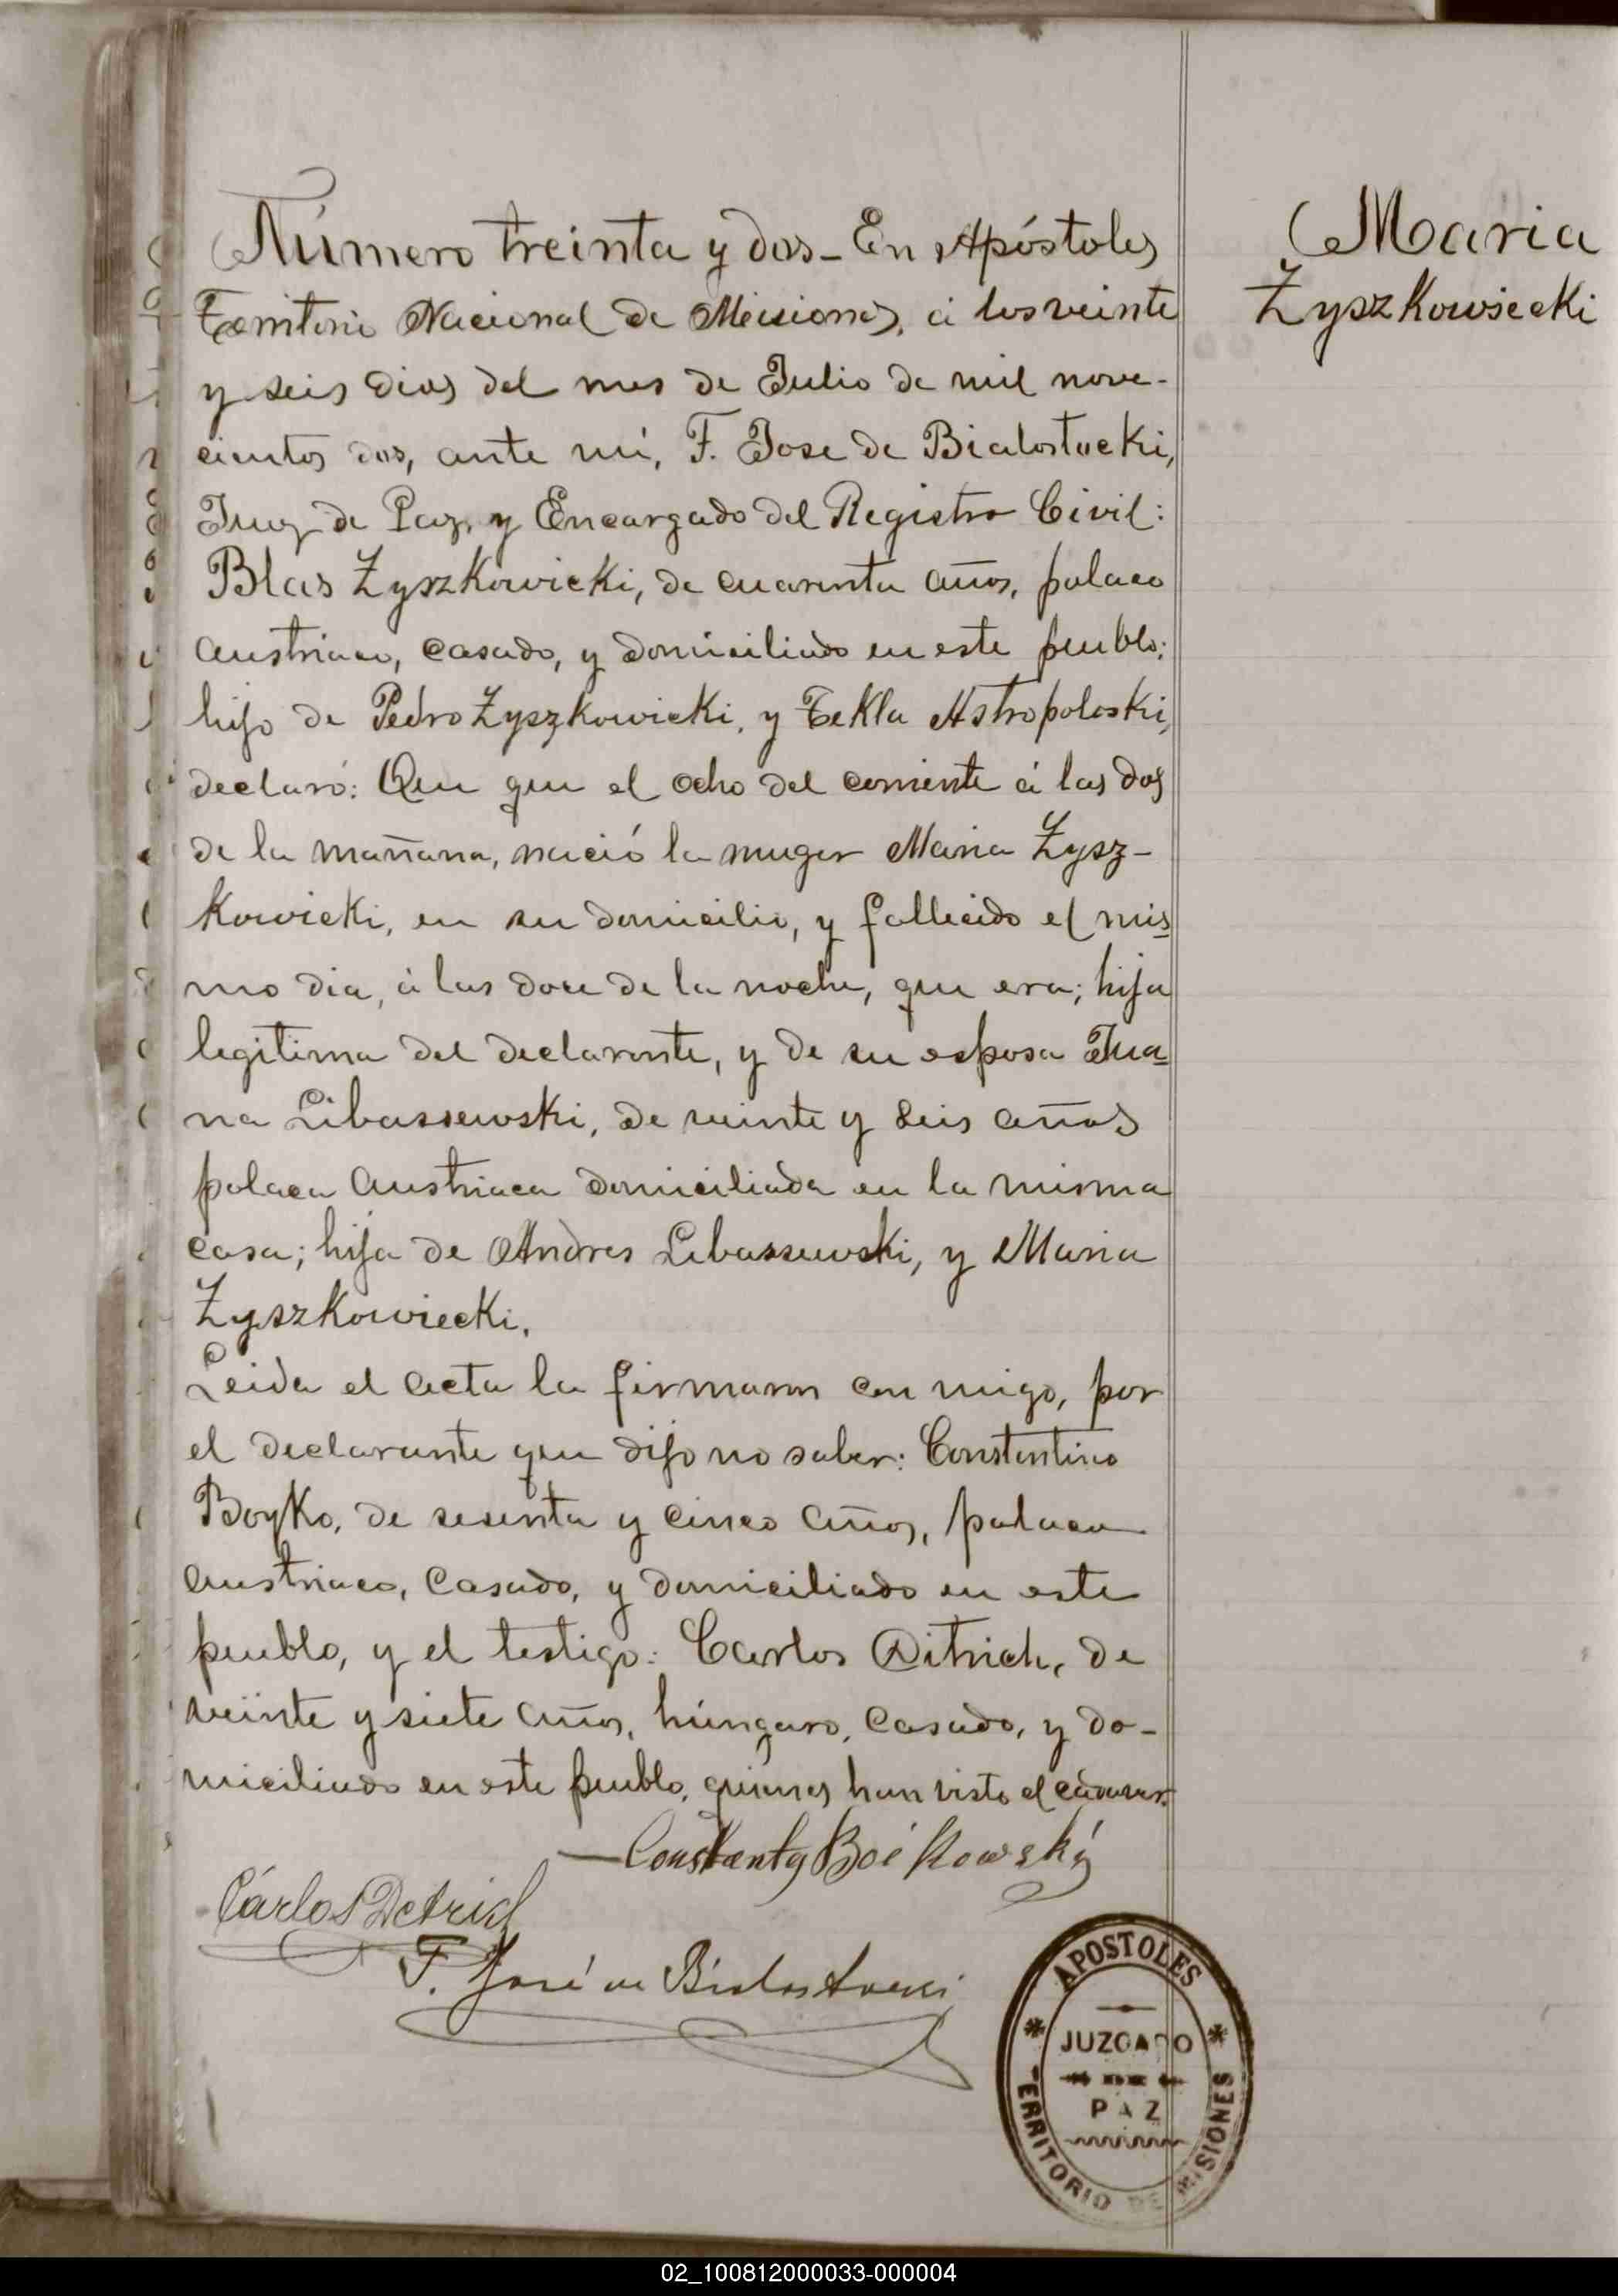 Número treinta y dos - En Apóstoles
Territorio Nacional de Misiones, á los veinte
y seis dias del mes de Julio de mil nove-
cientos dos, ante mi, F. Jose de Bialostocki,
Juez de Paz, y Encargado del Registro Civil:
Blas Zyszkowicki, de cuarenta años, polaco
austriaco, casado, y domiciliado en este pueblo;
hijo de Pedro Zyszkowicki, y Tekla Astropoloski,
declaró: Que que el ocho del corriente á las dos
de la mañana, nació la muger Maria Zysz-
kowicki, en su domicilio, y fallecido el mis-
mo dia, á las doce de la noche, que era; hija
legitima del declarante, y de su esposa Jua-
na Libassewski, de veinte y seis años
polaca austriaca domiciliada en la misma
casa; hija de Andres Libassewski, y Maria
Zyszkowiecki.
Leida el acta la firmaron con migo, por
el declarante que dijo no saber: Constantino
Boyko, de sesenta y cinco años, polaco
austriaco, casado, y domiciliado en este
pueblo, y el testigo: Carlos Ditrich, de
veinte y siete años, húngaro, casado, y do-
miciliado en este pueblo, quienes han visto el cadaver.
Constanty Boikowský
Cárlos Detrich
F. José de Bialostocki
Maria
Zyszkowiecki
APOSTOLES
JUZGADO
DE
PAZ
TERRITORIO DE MISIONES
02_100812000033-000004